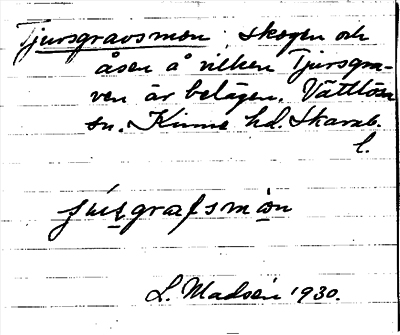 Tjursgravsmon; skogen och
åsen å vilken Tjursgra-
ven är belägen. Vättlösa
sn. Kinne hd. Skarab.
l.
L. Madsén 1930.